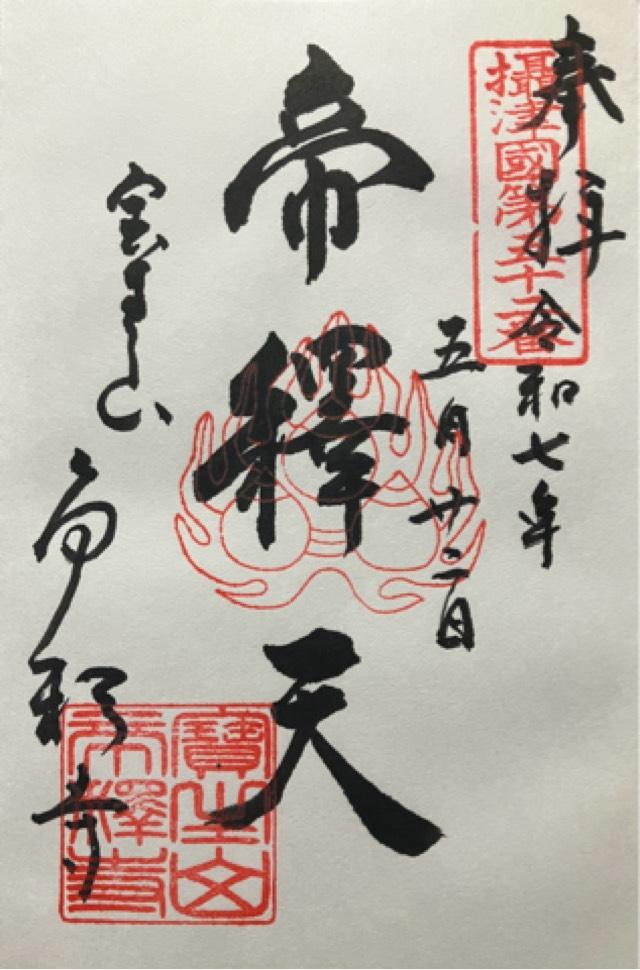 奉拝
攝津國第五十二番
令和七年
五月廿二日
帝釋天
宝生山
帝釈寺
寶生山
帝釋寺